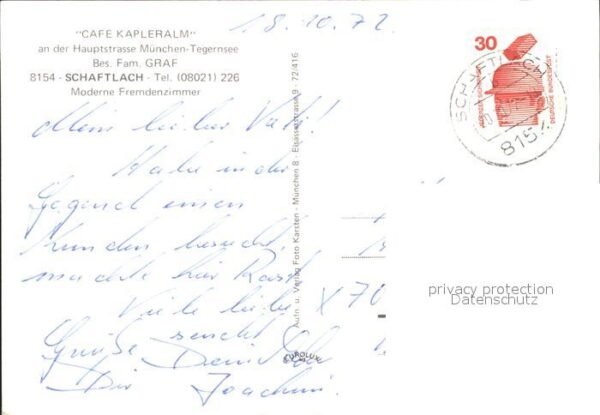 18.10.72
"CAFE KAPLERALM"
an der Hauptstrasse München-Tegernsee
Bes. Fam. GRAF
8154 - SCHAFTLACH - Tel. (08021) 226
Moderne Fremdenzimmer
30
JEDERZEIT SICHERHEIT
DEUTSCHE BUNDESPOST
SCHAFTLACH
815
Mein lieber Vati!
Habe in der
Gegend einen
Kunden besucht,
machte hier Rast.
Viele liebe
Grüße sendet
Dir Dein
Joachim.
X 70
Aufn. u. Verlag Foto Karsten - München 8 - Elsasserstrasse 9 - 72/416
EUROLUX
privacy protection
Datenschutz